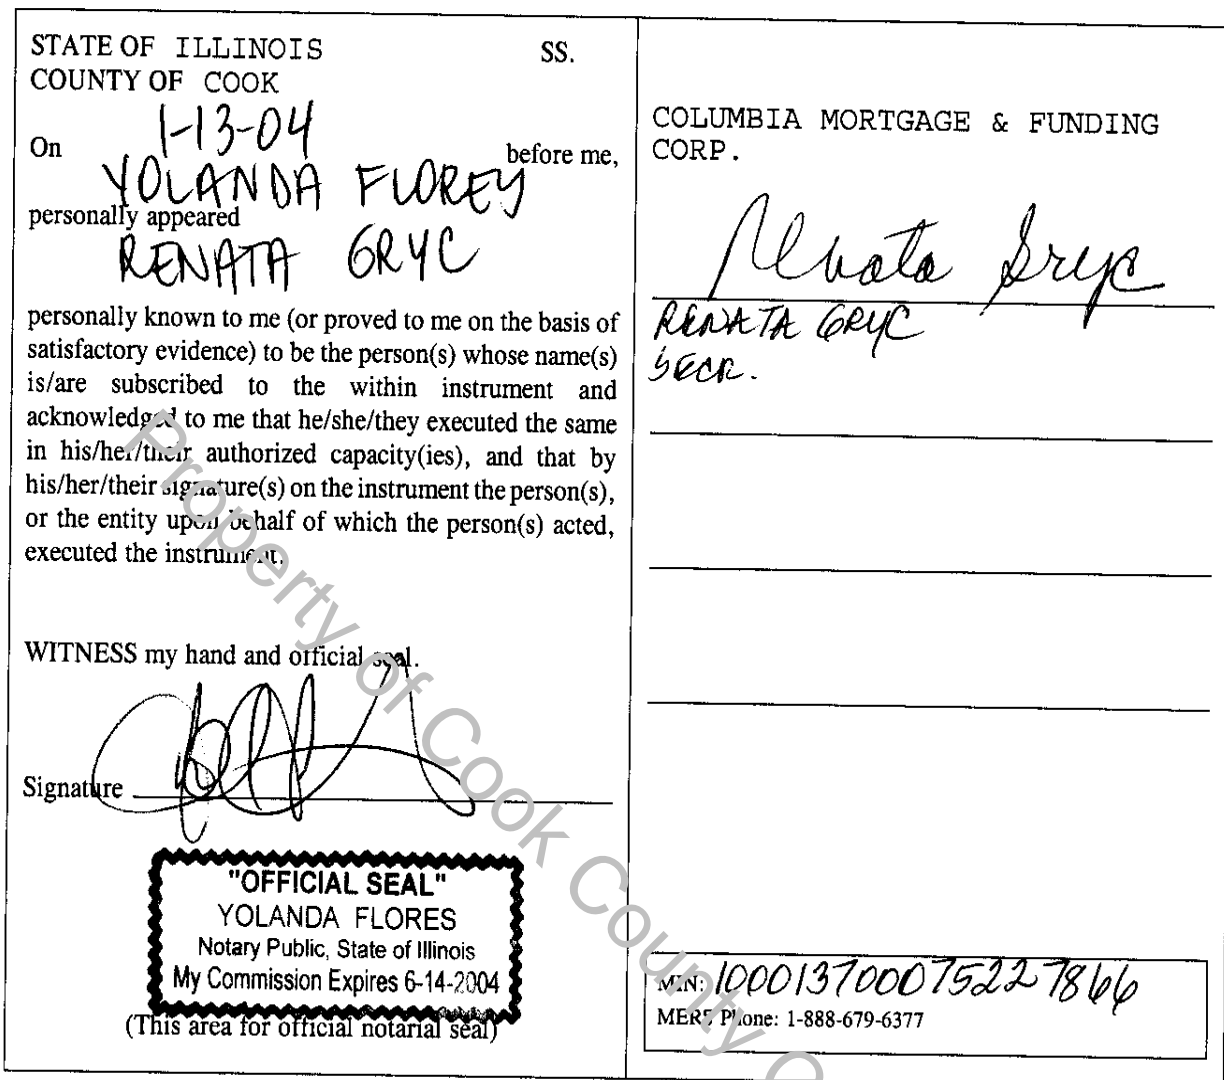 STATE OF ILLINOIS SS.
COUNTY OF COOK
On 1-13-04 before me,
YOLANDA FLORES
personally appeared
RENATA GRYC
personally known to me (or proved to me on the basis of
satisfactory evidence) to be the person(s) whose name(s)
is/are subscribed to the within instrument and
acknowledged to me that he/she/they executed the same
in his/her/their authorized capacity(ies), and that by
his/her/their signature(s) on the instrument the person(s),
or the entity upon behalf of which the person(s) acted,
executed the instrument.
WITNESS my hand and official seal.
Signature
"OFFICIAL SEAL"
YOLANDA FLORES
Notary Public, State of Illinois
My Commission Expires 6-14-2004
(This area for official notarial seal)
COLUMBIA MORTGAGE & FUNDING
CORP.
Renata Gryc
RENATA GRYC
SECR.
MIN: 100013700075227866
MERS Phone: 1-888-679-6377
Property of Cook County